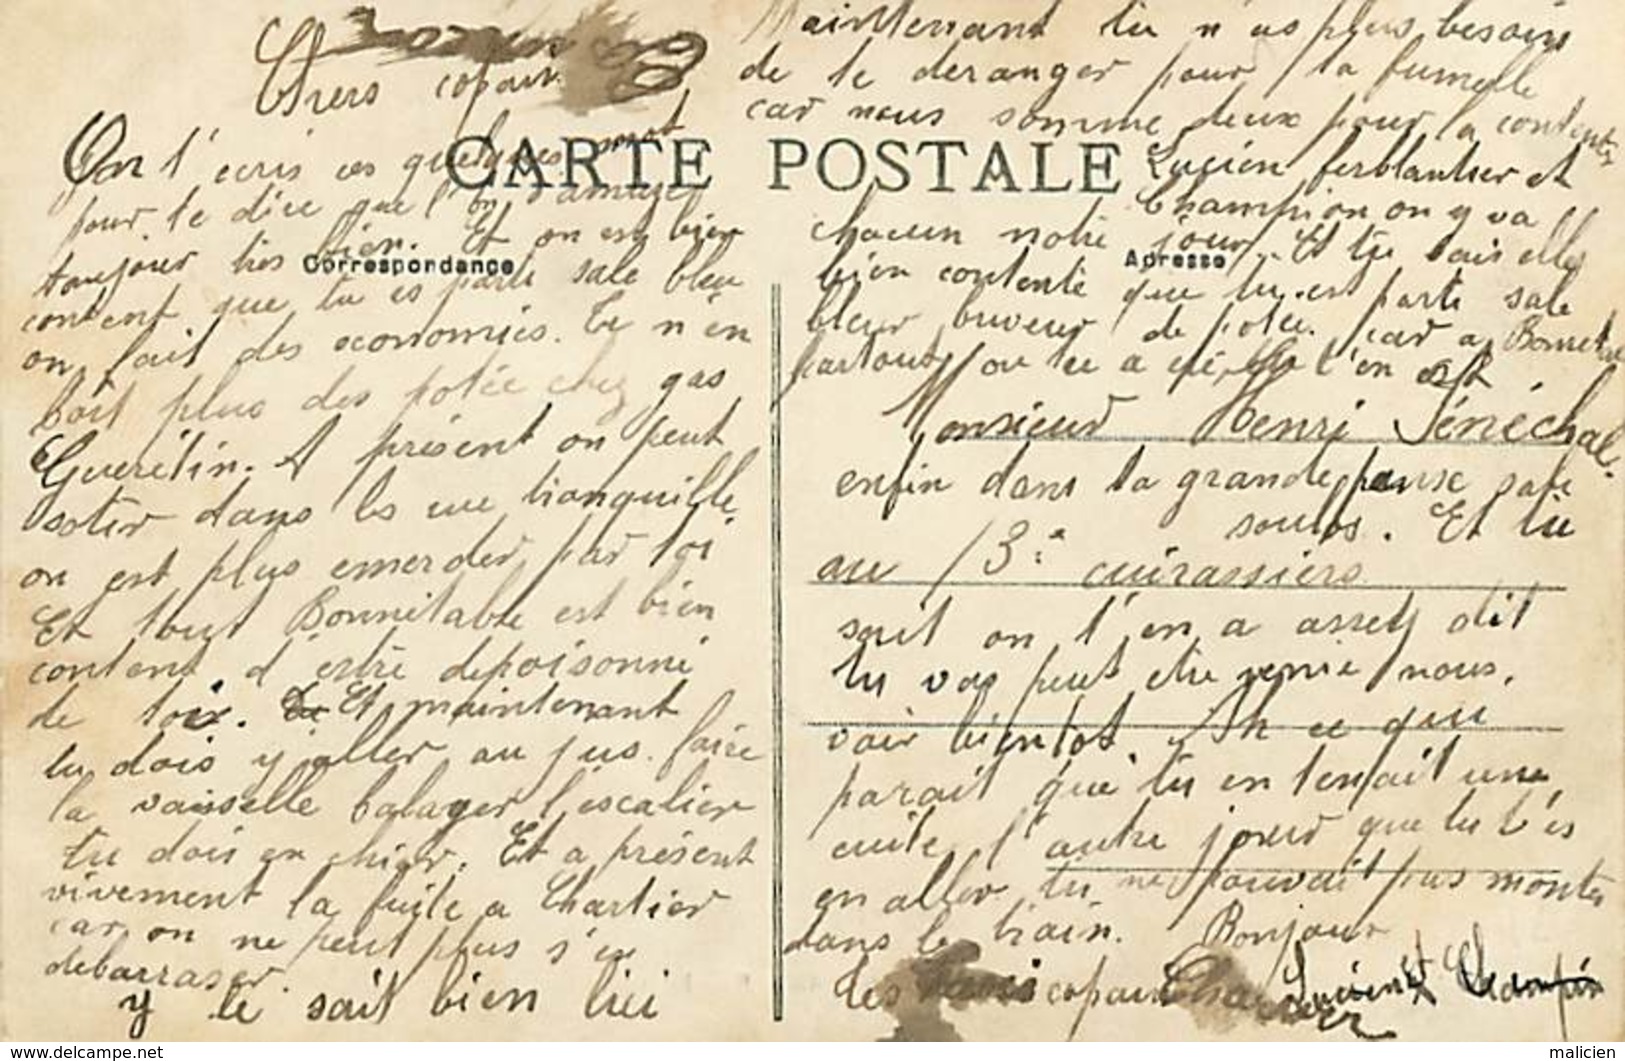 Chers copain
On t'ecris ces quelques mot
CARTE POSTALE
pour te dire que l'on s'amuse
toujour tres bien. Et on est bien
Correspondance
content que tu es parti sale bleu
on fait des economies. Tu n'en
boit plus des potée chez gas
Gueretin. A présent on peut
sotir dans les rue tranquille
on est plus emerder par toi
Et tout Bonnetable est bien
content d'estre depoisonné
de toi. Et maintenant
tu dois y aller au jus. faire
la vaisselle balayer l'escalier
tu dois en chier. Et a présent
vivement la fuite a Chartier
car on ne peut plus s'en
debarraser.
y le sait bien lui
Maintenant tu n'as plus besoin
de te deranger pour la fumelle
car nous somme deux pour la contenter
Lucien ferblantier et
Champion on y va
chacun notre jour. Et tu sais elle
Adresse
bien contente que tu est parti sale
bleu buveur de potée. car a Bonnetable
partout ou tu a été, l'en est
Monsieur Henri Sénéchal
enfin dans ta grande panse sale
soulos. Et tu
au 13e cuirassiers
sait on t'en a assez dit
tu vas peut etre venir nous
voir bientot. Ah ce qui
parait que tu en tenait une
cuite l'autre jour que tu t'es
en aller tu ne pouvait pas monter
dans le train. Bonjour
Les copain Lucien et Champion
delcampe.net
malicien